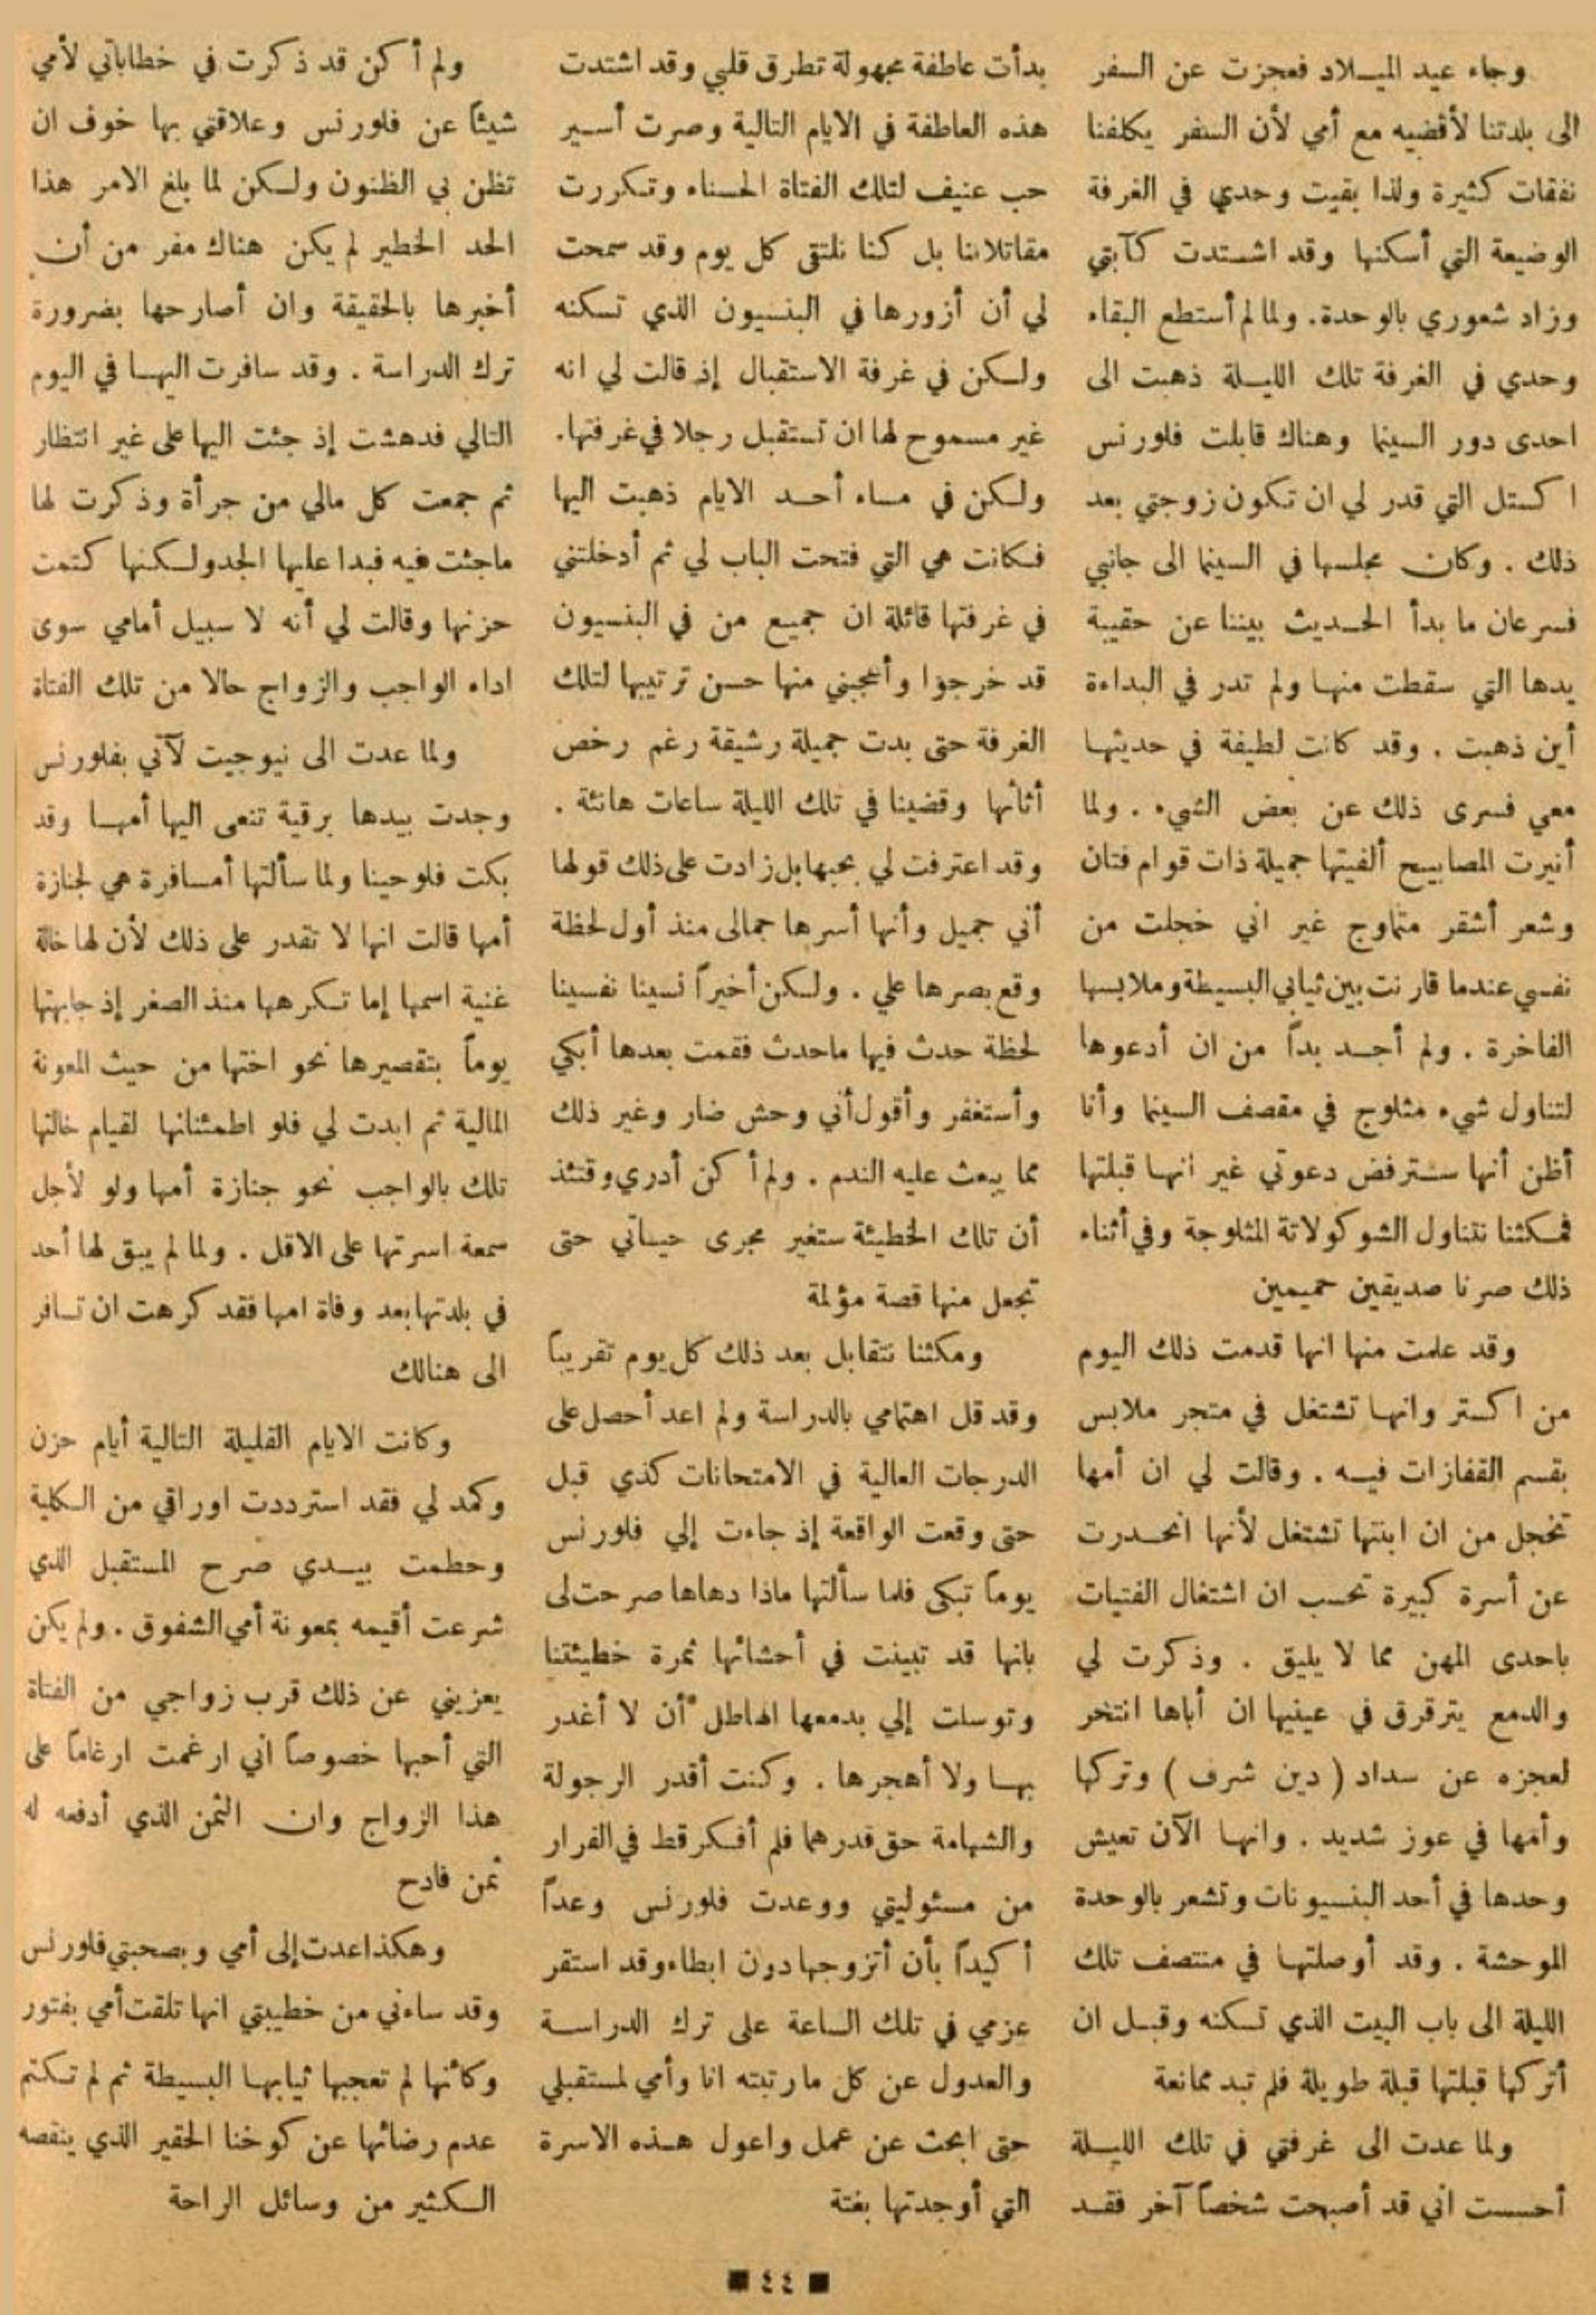 وجاء عيد الميلاد فعجزت عن السفر
الى بلدتنا لأقضيه مع أمي لأن السفر يكلفنا
نفقات كثيرة ولذا بقيت وحدي في الغرفة
الوضيعة التي أسكنها وقد اشتدت كآبتي
وزاد شعوري بالوحدة. ولما لم أستطع البقاء
وحدي في الغرفة تلك الليلة ذهبت الى
احدى دور السينما وهناك قابلت فلورنس
اكستل التي قدر لي ان تكون زوجتي بعد
ذلك . وكان مجلسها في السينما الى جانبي
فسرعان ما بدأ الحديث بيننا عن حقيبة
يدها التي سقطت منها ولم تدر في البداءة
أين ذهبت . وقد كانت لطيفة في حديثها
معي فسرى ذلك عن بعض الشيء . ولما
أنيرت المصابيح ألفيتها جميلة ذات قوام فتان
وشعر أشقر متماوج غير اني خجلت من
نفسي عندما قارنت بين ثيابي البسيطة وملابسها
الفاخرة . ولم أجد بداً من ان أدعوها
لتناول شيء مثلوج في مقصف السينما وأنا
أظن أنها سترفض دعوتي غير انها قبلتها
فمكثنا نتناول الشوكولاتة المثلوجة وفي أثناء
ذلك صرنا صديقين حميمين
وقد علمت منها انها قدمت ذلك اليوم
من اكستر وانها تشتغل في متجر ملابس
بقسم القفازات فيه . وقالت لي ان أمها
تخجل من ان ابنتها تشتغل لأنها انحدرت
عن أسرة كبيرة تحسب ان اشتغال الفتيات
باحدى المهن مما لا يليق . وذكرت لي
والدمع يترقرق في عينيها ان أباها انتحر
لعجزه عن سداد ( دين شرف ) وتركها
وأمها في عوز شديد . وانها الآن تعيش
وحدها في أحد البنسيونات وتشعر بالوحدة
الموحشة . وقد أوصلتها في منتصف تلك
الليلة الى باب البيت الذي تسكنه وقبل ان
أتركها قبلتها قبلة طويلة فلم تبد ممانعة
ولما عدت الى غرفتي في تلك الليلة
أحسست اني قد أصبحت شخصاً آخر فقد
بدأت عاطفة مجهولة تطرق قلبي وقد اشتدت
هذه العاطفة في الايام التالية وصرت أسير
حب عنيف لتلك الفتاة الحسناء وتكررت
مقاتلاتنا بل كنا نلتقى كل يوم وقد سمحت
لي أن أزورها في البنسيون الذي تسكنه
ولكن في غرفة الاستقبال إذ قالت لي انه
غير مسموح لها ان تستقبل رجلا في غرفتها.
ولكن في مساء أحد الايام ذهبت اليها
فكانت هي التي فتحت الباب لي ثم أدخلتني
في غرفتها قائلة ان جميع من في البنسيون
قد خرجوا وأعجبني منها حسن ترتيبها لتلك
الغرفة حتى بدت جميلة رشيقة رغم رخص
أثاثها وقضينا في تلك الليلة ساعات هانئة .
وقد اعترفت لي بحبها بل زادت على ذلك قولها
أني جميل وأنها أسرها جمالى منذ أول لحظة
وقع بصرها علي . ولكن أخيراً نسينا نفسينا
لحظة حدث فيها ماحدث فقمت بعدها أبكي
وأستغفر وأقول أني وحش ضار وغير ذلك
مما يبعث عليه الندم . ولم أكن أدري وقتئذ
أن تلك الخطيئة ستغير مجرى حياتي حتى
تجعل منها قصة مؤلمة
ومكثنا نتقابل بعد ذلك كل يوم تقريباً
وقد قل اهتمامي بالدراسة ولم اعد أحصل على
الدرجات العالية في الامتحانات كذي قبل
حتى وقعت الواقعة إذ جاءت إلي فلورنس
يوماً تبكى فلما سألتها ماذا دهاها صرحت لى
بانها قد تبينت في أحشائها ثمرة خطيئتنا
وتوسلت إلي بدمعها الهاطل أن لا أغدر
بها ولا أهجرها . وكنت أقدر الرجولة
والشهامة حق قدرهما فلم أفكر قط في الفرار
من مسئوليتي ووعدت فلورنس وعداً
أكيداً بأن أتزوجها دون ابطاء وقد استقر
عزمي في تلك الساعة على ترك الدراسة
والعدول عن كل مارتبته انا وأمي لمستقبلي
حتى ابحث عن عمل واعول هذه الاسرة
التي أوجدتها بغتة
ولم أكن قد ذكرت في خطاباتي لأمي
شيئاً عن فلورنس وعلاقتي بها خوف ان
تظن بي الظنون ولكن لما بلغ الامر هذا
الحد الخطير لم يكن هناك مفر من أن
أخبرها بالحقيقة وان أصارحها بضرورة
ترك الدراسة . وقد سافرت اليها في اليوم
التالي فدهشت إذ جئت اليها على غير انتظار
ثم جمعت كل مالي من جرأة وذكرت لها
ماجئت فيه فبدا عليها الجد ولكنها كتمت
حزنها وقالت لي أنه لا سبيل أمامي سوى
اداء الواجب والزواج حالا من تلك الفتاة
ولما عدت الى نيوجيت لآتي بفلورنس
وجدت بيدها برقية تنعى اليها أمها وقد
بكت فلو حينا ولما سألتها أمسافرة هي لجنازة
أمها قالت انها لا تقدر على ذلك لأن لها خالة
غنية اسمها إما تكرهها منذ الصغر إذ جابهتها
يوماً بتقصيرها نحو اختها من حيث المعونة
المالية ثم ابدت لي فلو اطمئنانها لقيام خالتها
تلك بالواجب نحو جنازة أمها ولو لأجل
سمعة اسرتها على الاقل . ولما لم يبق لها أحد
في بلدتها بعد وفاة امها فقد كرهت ان تسافر
الى هنالك
وكانت الايام القليلة التالية أيام حزن
وكمد لي فقد استرددت اوراقي من الكلية
وحطمت بيدي صرح المستقبل الذي
شرعت أقيمه بمعونة أمي الشفوق . ولم يكن
يعزيني عن ذلك قرب زواجي من الفتاة
التي أحبها خصوصاً اني ارغمت ارغاماً على
هذا الزواج وان الثمن الذي أدفعه له
ثمن فادح
وهكذا عدت إلى أمي وبصحبتي فلورنس
وقد ساءني من خطيبتي انها تلقت أمي بفتور
وكأنها لم تعجبها ثيابها البسيطة ثم لم تكتم
عدم رضائها عن كوخنا الحقير الذي ينقصه
الكثير من وسائل الراحة
٤٤